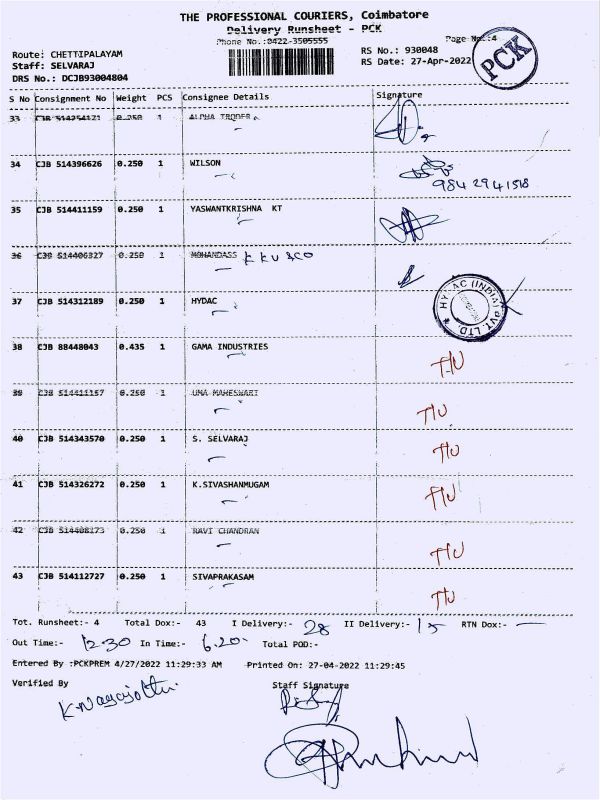 THE PROFESSIONAL COURIERS, Coimbatore
Delivery Runsheet - PCK
Phone No.:0422-3505555
Page No.:4
Route: CHETTIPALAYAM
RS No.: 930048
Staff: SELVARAJ
RS Date: 27-Apr-2022
PCK
DRS No.: DCJB93004804
S No Consignment No Weight PCS Consignee Details Signature
33 CJB 514254121 0.250 1 ALPHA TRODER
34 CJB 514396626 0.250 1 WILSON
9842941518
35 CJB 514411159 0.250 1 YASWANTKRISHNA KT
36 CJB 514406327 0.250 1 MOHANDASS K K U & CO
37 CJB 514312189 0.250 1 HYDAC
HYDAC (INDIA) PVT. LTD.
38 CJB 88448043 0.435 1 GAMA INDUSTRIES T/U
39 CJB 514411157 0.250 1 UMA MAHESWARI T/U
40 CJB 514343570 0.250 1 S. SELVARAJ T/U
41 CJB 514326272 0.250 1 K.SIVASHANMUGAM T/U
42 CJB 514408173 0.250 1 RAVI CHANDRAN T/U
43 CJB 514112727 0.250 1 SIVAPRAKASAM T/U
Tot. Runsheet:- 4 Total Dox:- 43 I Delivery:- 28 II Delivery:- 15 RTN Dox:- —
Out Time:- 12.30 In Time:- 6.20 Total POD:-
Entered By :PCKPREM 4/27/2022 11:29:33 AM Printed On: 27-04-2022 11:29:45
Verified By Staff Signature
K.Nagajothi